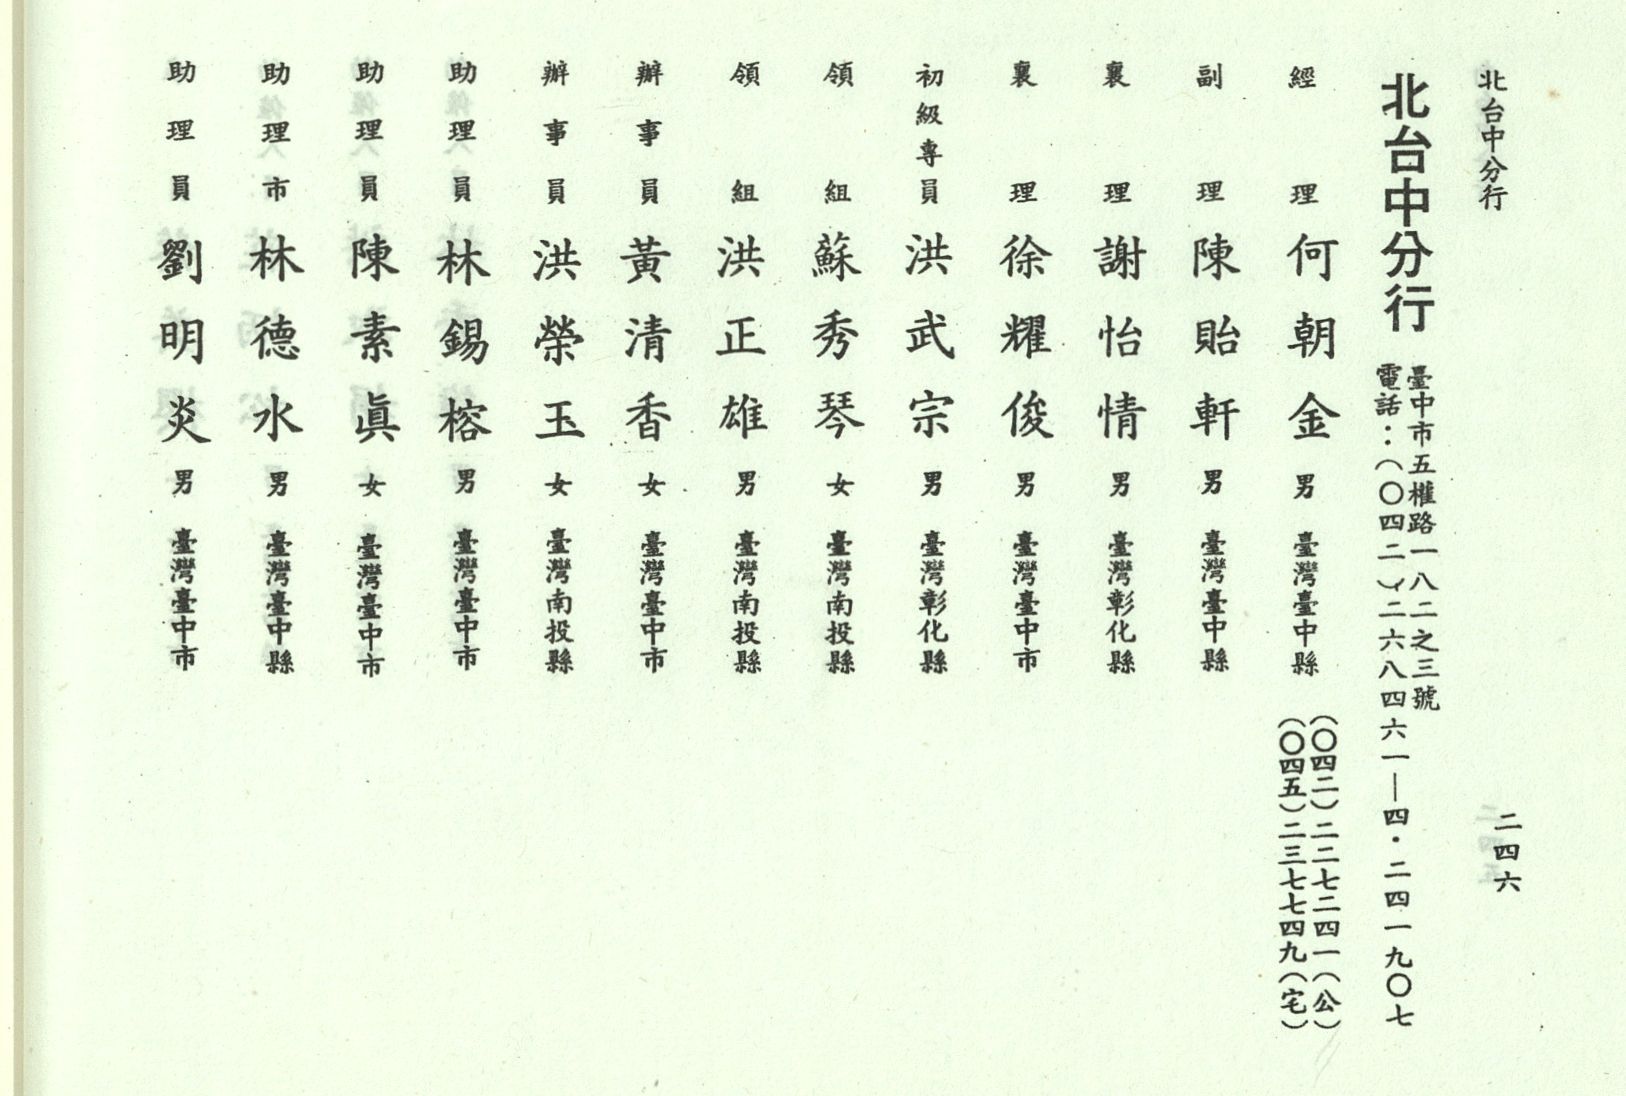 北台中分行
二四六
北台中分行
臺中市五權路一八二之三號
電話：（〇四二）二六八四六一—四・二四一九〇七
經理 何朝金 男 臺灣臺中縣
（〇四二）二二七二四一（公）
（〇四五）二三七七四九（宅）
副理 陳貽軒 男 臺灣臺中縣
襄理 謝怡情 男 臺灣彰化縣
襄理 徐耀俊 男 臺灣臺中市
初級專員 洪武宗 男 臺灣彰化縣
領組 蘇秀琴 女 臺灣南投縣
領組 洪正雄 男 臺灣南投縣
辦事員 黃清香 女 臺灣臺中市
辦事員 洪榮玉 女 臺灣南投縣
助理員 林錫榕 男 臺灣臺中市
助理員 陳素眞 女 臺灣臺中市
助理市 林德水 男 臺灣臺中縣
助理員 劉明炎 男 臺灣臺中市